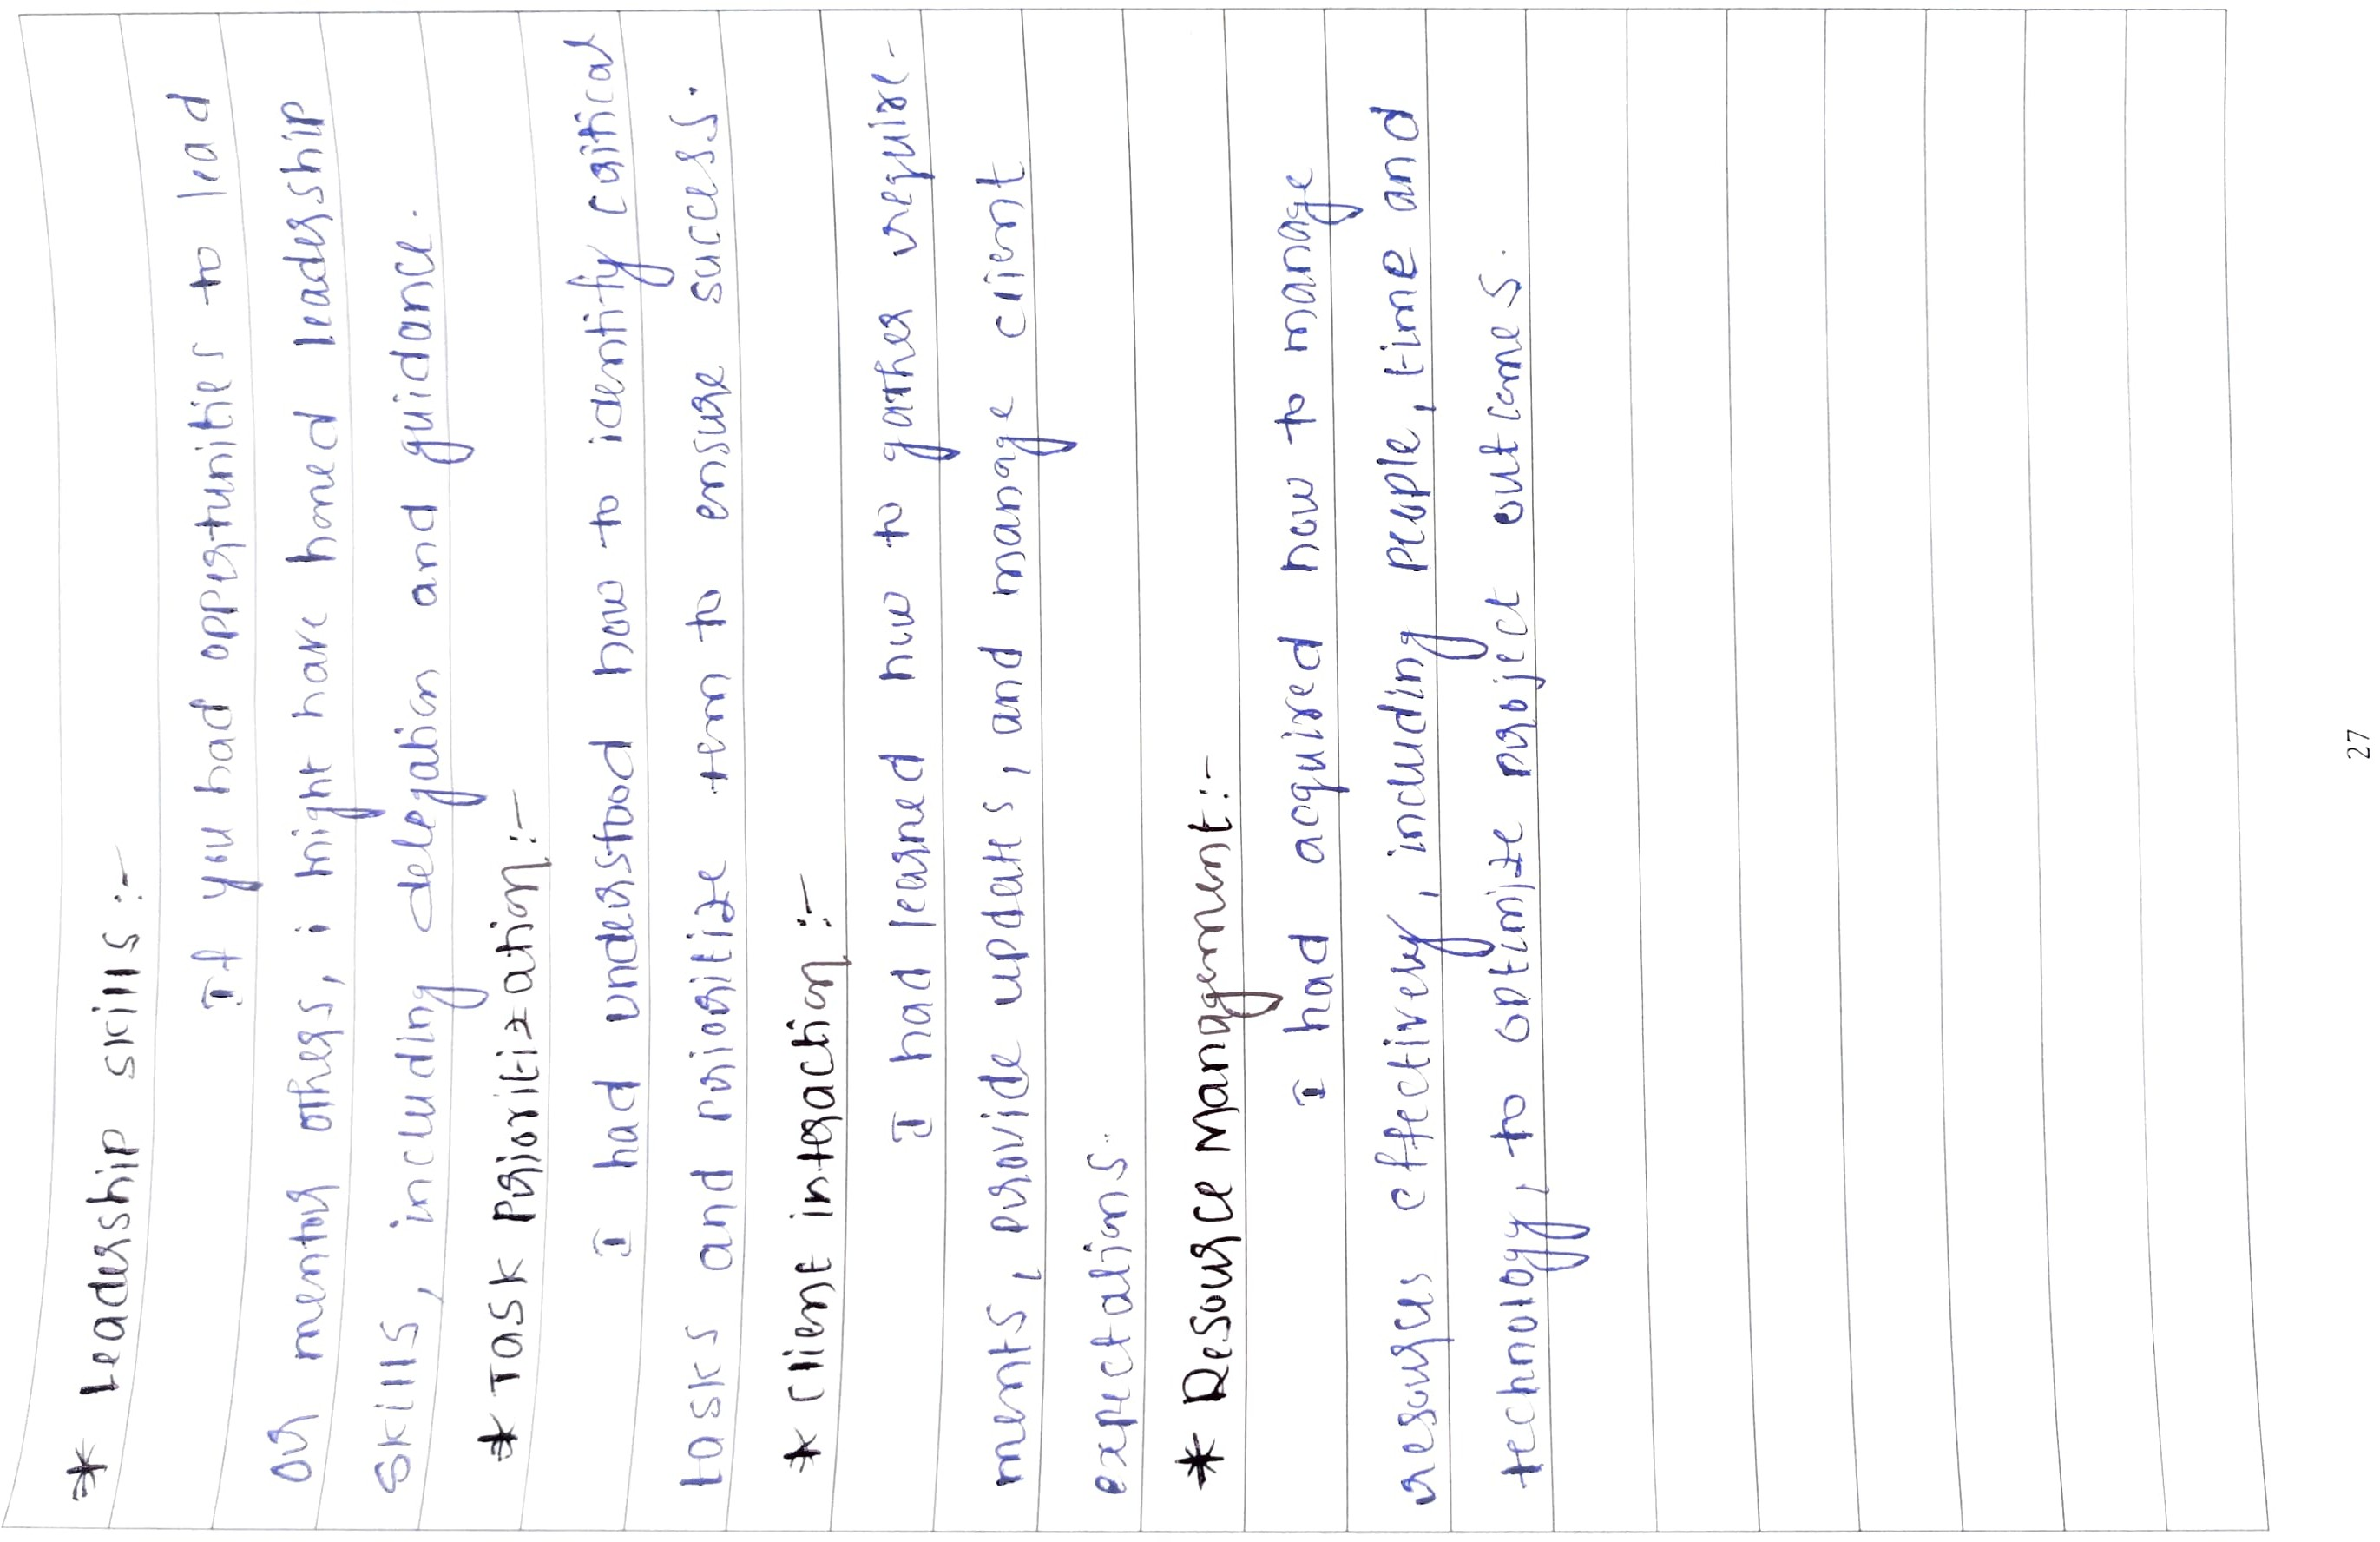 * Leadership skills :-
If you had opportunities to lead
or mentor others, i might have honed leadership
skills, including delegation and guidance.
* Task Prioritization:-
I had understood how to identify critical
tasks and prioritize tem to ensure success.
* Client interaction :-
I had learned how to gather require-
ments, provide updates, and mange client
expectations.
* Resource Management:-
I had acquired how to mange
resources effectively, including people, time and
technology, to optimize project outcomes.
27